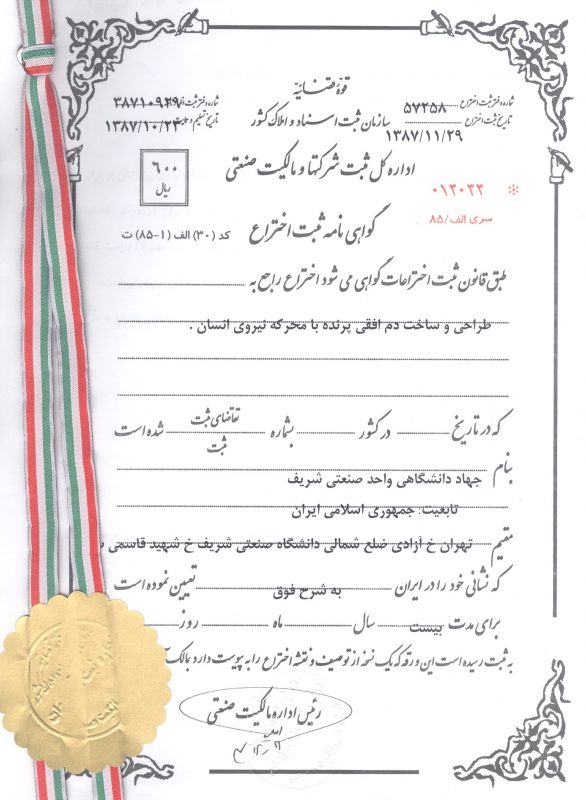 قوۀ قضائیه
شماره دفتر ثبت اختراع ۵۷۲۵۸
سازمان ثبت اسناد و املاک کشور
تاریخ ثبت اختراع ۱۳۸۷/۱۱/۲۹
شماره دفتر ثبت ۳۸۷۱۰۹۴۹
تاریخ تسلیم ۱۳۸۷/۱۰/۲۳
اداره کل ثبت شرکتها و مالکیت صنعتی
۶۰۰
ریال
* ۰۱۲۰۲۲
سری الف/۸۵
گواهی نامه ثبت اختراع
کد (۳۰) الف (۱-۸۵) ت
طبق قانون ثبت اختراعات گواهی می شود اختراع راجع به
طراحی و ساخت دم افقی پرنده با محرکه نیروی انسان .
که در تاریخ در کشور بشماره تقاضای ثبت شده است
ثبت
بنام جهاد دانشگاهی واحد صنعتی شریف
تابعیت: جمهوری اسلامی ایران
مقیم تهران خ آزادی ضلع شمالی دانشگاه صنعتی شریف خ شهید قاسمی
که نشانی خود را در ایران به شرح فوق تعیین نموده است
برای مدت بیست سال ماه روز
به ثبت رسیده است این ورقه که یک نسخه از توصیف و نقشه اختراع را به پیوست دارد بمالک
رئیس اداره مالکیت صنعتی